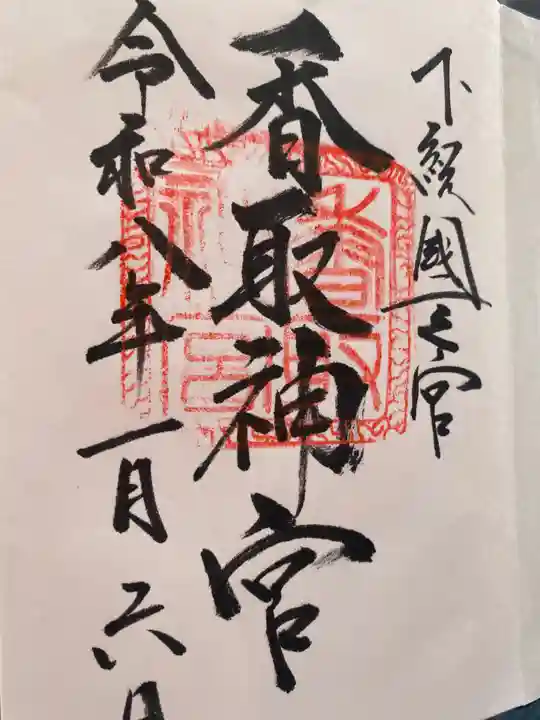 下総國一之宮
香取神宮
令和八年一月六日
香取神宮